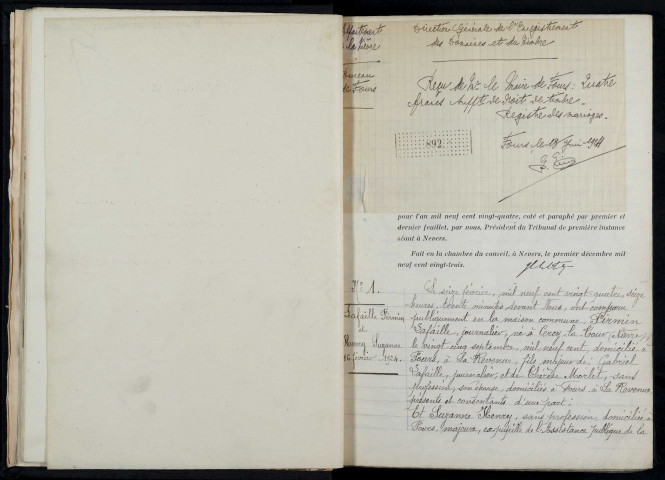 Département
de la Nièvre
Bureau
de Fours
Direction Générale de l'Enregistrement
des Domaines et du Timbre
Reçu de Mr le Maire de Fours: Quatre
francs de Droits de timbre.
Registre des mariages.
892
Fours le 18 Juin 1924
pour l'an mil neuf cent vingt-quatre, coté et paraphé par premier et
dernier feuillet, par nous, Président du Tribunal de première instance
séant à Nevers.
Fait en la chambre du conseil, à Nevers, le premier décembre mil
neuf cent vingt-trois.
No 1.
Lafaille Firmin
et
Henry Suzanne
16 février 1924.
Le seize février, mil neuf cent vingt-quatre, seize
heures trente minutes devant Nous, ont comparu
publiquement en la maison commune, Firmin
Lafaille, journalier, né à Cercy la Tour, Nièvre,
le vingt cinq septembre, mil neuf cent, domicilié à
Fours, à La Revenue, fils majeur de Gabriel
Lafaille, journalier, et de Thérèse Morlet, sans
profession, son épouse, domiciliés à Fours, à La Revenue,
présents et consentants d'une part;
Et Suzanne Henry, sans profession, domiciliée à
Fours, majeure, ex pupille de l'Assistance publique de la